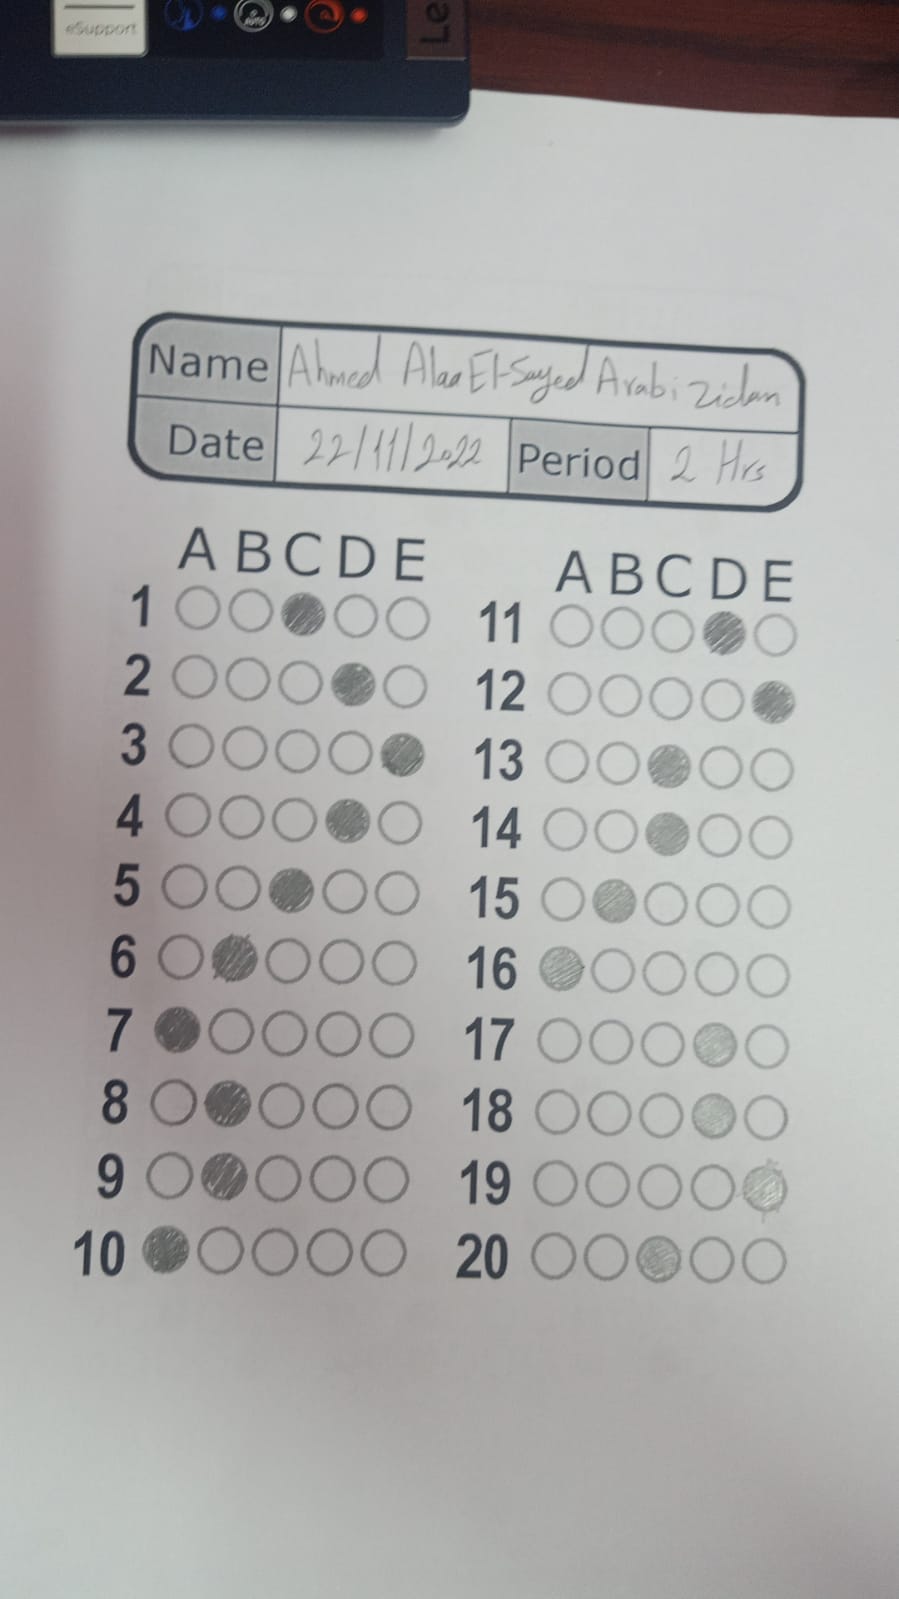 eSupport
AUTO
Le
Name Ahmed Alaa El-Sayed Arabi Zidan
Date 22/11/2022 Period 2 Hrs
A B C D E
1
2
3
4
5
6
7
8
9
10
A B C D E
11
12
13
14
15
16
17
18
19
20